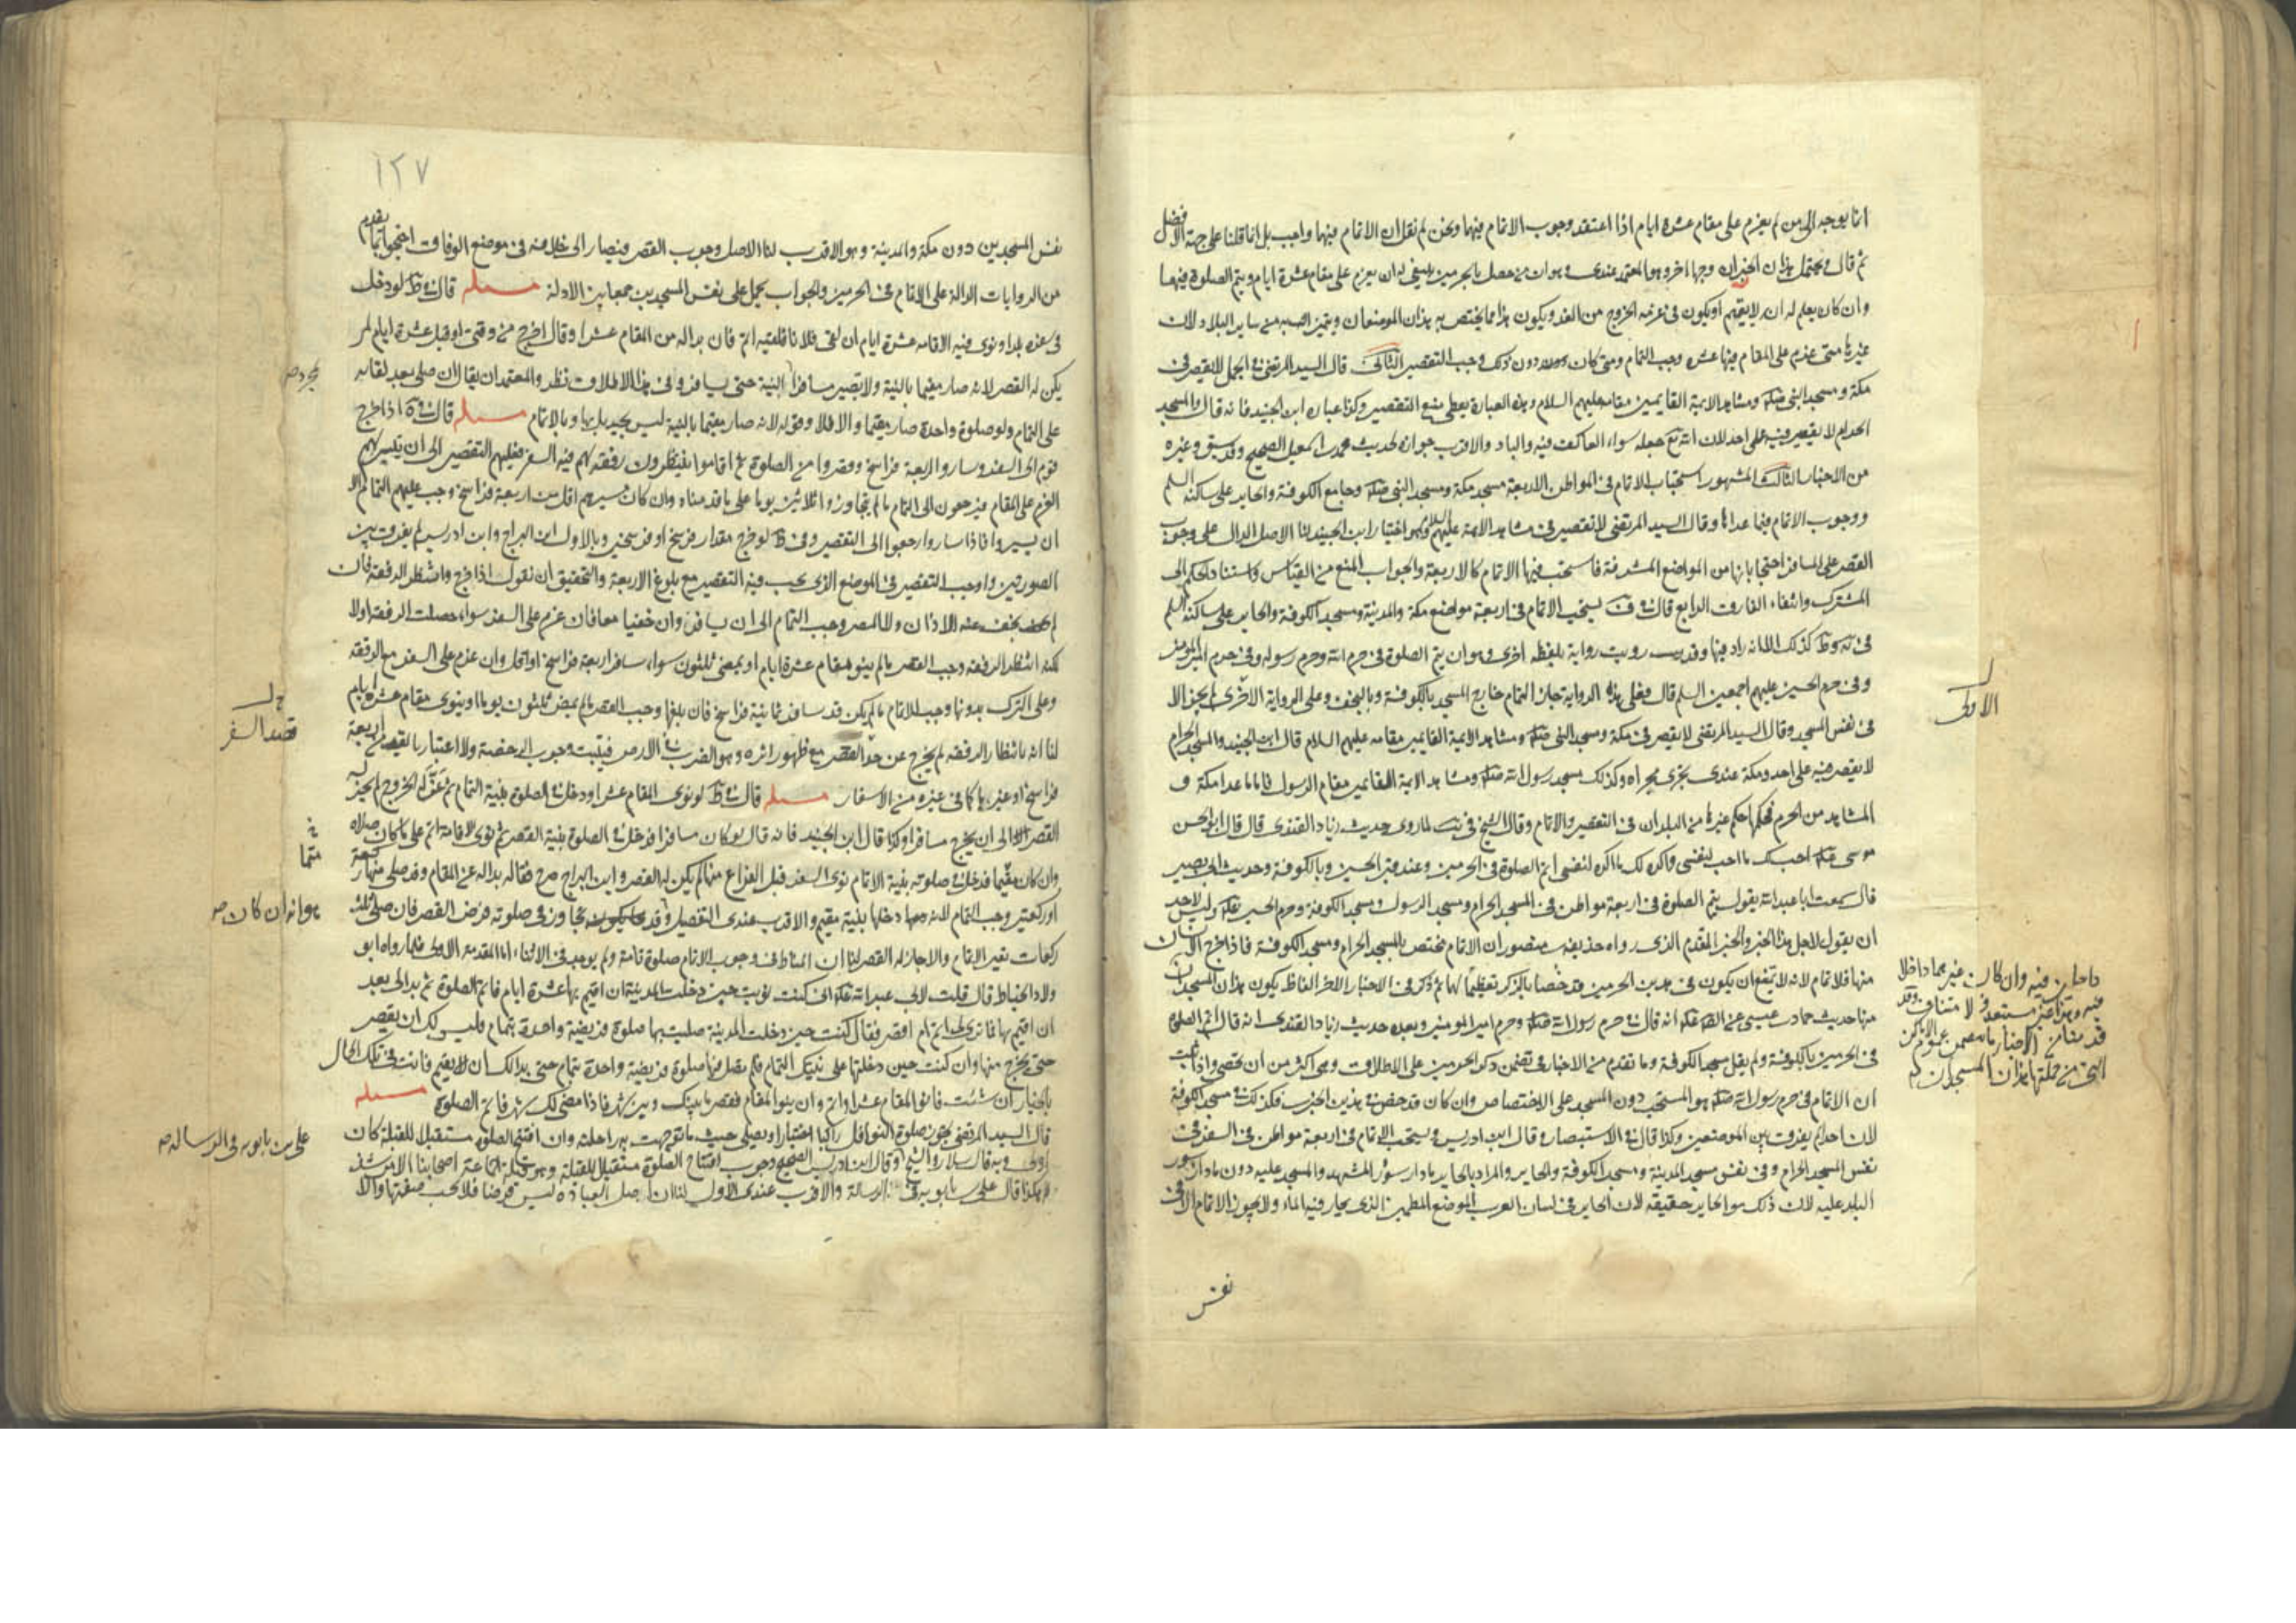 انما يوجه الى من لم يعزم على مقام عشرة ايام اذا اعتقد وجوب الاتمام فيها ونحن لم نقل ان الاتمام فيها واجب بل انما قلنا على جهة الافضل
ثم قال ويحتمل هذان الخبران وجها اخر وهو المعتمد عندى وهو ان من حصل بالحرمين ينبغى له ان يعزم على مقام عشرة ايام ويتم الصلوة فيهما
وان كان يعلم انه لا يقيم او يكون فى عزمه الخروج من الغد ويكون هذا مما يختص به هذان الموضعان ويتميزان به من ساير البلاد لان
غيرهما متى عزم على المقام فيها عشره وجب التمام ومتى كان دون ذلك وجب التقصير الثانى قال السيد المرتضى فى الجمل لا تقصير فى
مكة ومسجد النبى ومشاهد الايمة القايمين مقامه عليهم السلام وهذه العبارة يعطى منع التقصير وكذا عبارة ابن الجنيد فانه قال والمسجد
الحرام لا تقصير فيه على احد لان الله تع جعله سواء العاكف فيه والباد والاقرب جوازه لحديث محمد بن اسمعيل الصحيح وقد سبق وغيره
من الاخبار الثالث المشهور استحباب الاتمام فى المواطن الاربعة مسجد مكة ومسجد النبى وجامع الكوفة والحاير على ساكنه السلم
ووجوب الاتمام فيما عداها وقال السيد المرتضى لا تقصير فى مشاهد الايمة عليهم السلام وهو اختيار ابن الجنيد لنا الاصل الدال على وجوب
القصر على المسافر احتجا بانها من المواضع المشرفة فاستحب فيها الاتمام كالاربعة والجواب المنع من القياس واستناد الحكم الى
المشترك وانتفاء الفارق الرابع قال يستحب الاتمام فى اربعة مواضع مكة والمدينة ومسجد الكوفة والحاير على ساكنه السلم
فى وط كذلك الا انه زاد فيها وقد رويت رواية بلفظه اخرى وهو ان يتم الصلوة فى حرم الله وحرم رسوله وفى حرم امير المؤمنين
وفى حرم الحسين عليهم اجمعين السلم قال فعلى هذه الرواية جاز التمام خارج المسجد بالكوفة وبالنجف وعلى الرواية الاخرى لم يجز الا
فى نفس المسجد وقال السيد المرتضى لا تقصير فى مكة ومسجد النبى ومشاهد الايمة القايمين مقامه عليهم السلام قال ابن الجنيد والمسجد الحرام
لا تقصير فيه على احد ومكة عندى يجرى مجراه وكذلك مسجد رسول الله ومشاهد الايمة القايمين مقام الرسول فاما ما عدا مكة و
المشاهد من الحرم فحكمها حكم غيرها من البلدان فى التقصير والاتمام وقال الشيخ فى لما روى حديث زياد القندى قال قال ابو الحسن
موسى احب لك ما احب لنفسى واكره لك ما اكره لنفسى اتم الصلوة فى الحرمين وعند قبر الحسين وبالكوفة وحديث ابى بصير
قال سمعت ابا عبد الله يقول يتم الصلوة فى اربعة مواطن فى المسجد الحرام ومسجد الرسول ومسجد الكوفة وحرم الحسين وليس لاحد
ان يقول لاجل هذا الخبر والخبر المتقدم الذى رواه حذيفه بن منصور ان الاتمام يختص بالمسجد الحرام ومسجد الكوفة فاذا خرج الانسان
منها فلا تمام لانه لا يمتنع ان يكون فى هذين الحرمين قد خصا بالذكر تعظيما لهما ثم ذكر فى الاخبار الاخر الفاظ يكون هذان المسجدان
منها حديث حماد بن عيسى عن انه قال فى حرم رسول الله وحرم امير المؤمنين وبعده حديث زياد القندى انه قال اتم الصلوة
فى الحرمين بالكوفة ولم يقل مسجد الكوفة وما تقدم من الاخبار فى تضمن ذكر الحرمين على الاطلاق وهى اكثر من ان تحصى واذا ثبت
ان الاتمام فى حرم رسول الله هو المستحب دون المسجد على الاختصاص وان كان قد خص فى هذين الخبرين فكذلك فى مسجد الكوفة
لان احدا لم يفرق بين الموضعين وكذا قال فى الاستبصار وقال ابن ادريس ويستحب الاتمام فى اربعة مواطن فى السفر فى
نفس المسجد الحرام وفى نفس مسجد المدينة ومسجد الكوفة والحاير والمراد بالحاير ما دار سور المشهد والمسجد عليه دون ما دار سور
البلد عليه لان ذلك هو الحاير حقيقة لان الحاير فى لسان العرب الموضع المطمئن الذى يحار فيه الماء ولا يجوز الاتمام الا فى
نفس
الاولى
داخلين فيه وان كان غيرهما داخلا
فيه وهذا غير مستبعد ولا متناف وقد
قدمنا من الاخبار ما يتضمن عموم الاماكن
التى من جملتها هذان المسجدان
١٢٧
نفس المسجدين دون مكة والمدينة وهو الاقرب لنا الاصل وجوب القصر فيصار الى خلافه فى موضع الوفاق احتجوا بما تقدم
من الروايات الدالة على الاتمام فى الحرمين والجواب يحمل على نفس المسجدين جمعا بين الادلة مسئله قال فى ط لو دخل
فى سفره بلدا ونوى فيه الاقامه عشرة ايام ان لقى فلانا فلقيه اتم فان بدا له من المقام عشرا وقال اخرج من وقتى او قبل عشرة ايام لم
يكن له القصر لانه صار مقيما بالنية ولا يصير مسافرا بالنية حتى يسافر وفى هذا الاطلاق نظر والمعتمد ان يقال ان صلى بعد لقائه
على التمام ولو صلوة واحدة صار مقيما والا فلا وقوله لانه صار مقيما بالنية ليس بجيد بل بها وبالاتمام مسئله قال فى اذا خرج
قوم الى السفر وساروا اربعة فراسخ وقصروا من الصلوة ثم اقاموا ينتظرون رفقة لهم فيه السفر فعليهم التقصير الى ان تيسر لهم
العزم على المقام فيرجعون الى التمام ما لم يتجاوزوا ثلاثين يوما على ما قدمناه وان كان مسيرهم اقل من اربعة فراسخ وجب عليهم التمام الا
ان يسيروا فاذا ساروا رجعوا الى التقصير وفى ط لو خرج مقدار فرسخ او فرسخين وبالاول ابن البراج وابن ادريس لم يفرق بين
الصورتين واوجب التقصير فى الموضع الذى يجب فيه التقصير مع بلوغ الاربعة والتحقيق ان نقول اذا خرج وانتظر الرفقة فان
لم يخف عنه الاذان ولا المصر وجب التمام الى ان يسافر وان خفيا معا فان عزم على السفر سواء حصلت الرفقة اولا
لكنه انتظر الرفقة وجب القصر ما لم ينو مقام عشرة ايام او يمضى ثلثون سواء سافر اربعة فراسخ او اقل وان عزم على السفر مع الرفقة
وعلى الترك بدونها وجب الاتمام ما لم يكن قد سافر ثمانية فراسخ فان بلغها وجب القصر ما لم يمض ثلثون يوما او ينوى مقام عشرة ايام
لنا انه بانتظار الرفقه لم يخرج عن حد القصر مع ظهور اثره وهو الضرب فى الارض فيثبت وجوب الرخصة ولا اعتبار بالتقييد باربعة
فراسخ او غيرها كما فى غيره من الاسفار مسئله قال فى ط لو نوى المقام عشرا ودخل فى الصلوة بنية التمام ثم عن له الخروج لم يجز له
القصر الا الى ان يخرج مسافرا وكذا قال ابن الجنيد فانه قال لو كان مسافرا فدخل فى الصلوة بنية القصر ثم نوى الاقامة اتم على ما كان صلاه
وان كان مقيما فدخل فى صلوته بنية الاتمام نوى السفر قبل الفراغ منها لم يكن له القصر وابن البراج صرح فقال لو بدا له عن المقام وقد صلى منها ركعة
او ركعتين وجب التمام لانه دخلها بنية مقيم والاقرب عندى التفصيل وقد تجاوز فى صلوته فرض القصر فان صلى ثلث
ركعات تعين الاتمام والا جاز له القصر لنا ان المناط فى وجوب الاتمام صلوة تامة ولم يوجد فى الاثناء اما المقدمة الاولى فلما رواه ابو
ولاد الحناط قال قلت لابى عبد الله انى كنت نويت حين دخلت المدينة ان اقيم بها عشرة ايام فاتم الصلوة ثم بدا لى بعد
ان اقيم بها فما ترى لى اتم ام اقصر فقال ان كنت حين دخلت المدينة صليت بها صلوة فريضة واحدة بتمام فليس لك ان تقصر
حتى تخرج منها وان كنت حين دخلتها على نيتك التمام فلم تصل فيها صلوة فريضة واحدة بتمام حتى بدا لك ان لا تقيم فانت فى تلك الحال
بالخيار ان شئت فانو المقام عشرا واتم وان لم تنو المقام فقصر ما بينك وبين شهر فاذا مضى لك شهر فاتم الصلوة مسئله
قال السيد المرتضى يجوز صلوة النوافل راكبا اختيارا ويصلى حيث ما توجهت به راحلته وان افتتح الصلوة مستقبل للقبلة كان
اولى وبه قال سلار والشيخ وقال ابن ادريس الصحيح وجوب افتتاح الصلوة مستقبلا للقبلة وهو قول جماعة اصحابنا الا من شذ
هكذا قال على بن بابويه فى الرسالة والاقرب عندى الاول لنا ان اصل العبادة ليس فرضا فلا تجب صفتها والا
بمجرد
قصد السفر
متمما
هو انه ان كان صح
على بن بابويه فى الرساله صح